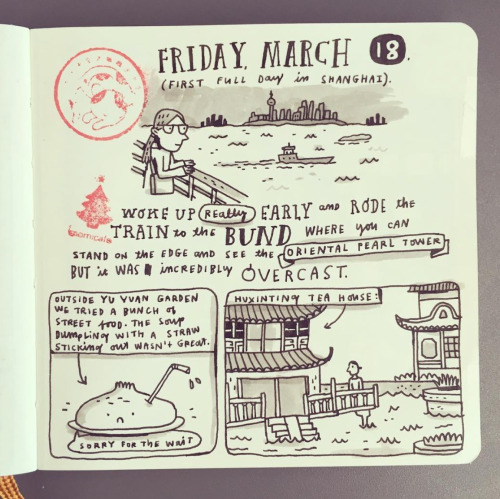 FRIDAY, MARCH 18.
(FIRST FULL DAY in SHANGHAI).
WOKE UP Really EARLY and RODE the
TRAIN to the BUND WHERE YOU CAN
STAND ON THE EDGE AND SEE the ORIENTAL PEARL TOWER
BUT it WAS incredibly OVERCAST.
OUTSIDE YU YUAN GARDEN
WE TRIED A BUNCH of
STREET food. THE Soup
DUMPLING WITH A STRAW
STICKING out WASN't GREAT.
SORRY FOR THE WAIT
HUXINTING TEA HOUSE: